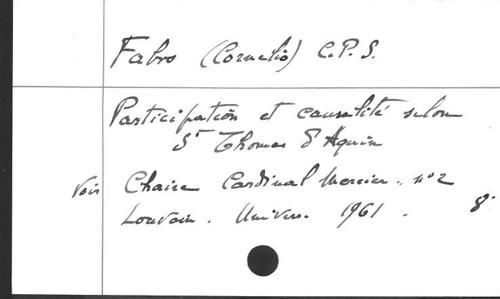 Fabro (Cornelio) C.P.S.
Participation et causalité selon
St Thomas d'Aquin
Voir Chaire Cardinal Mercier. n° 2
Louvain. Univers. 1961. 8°